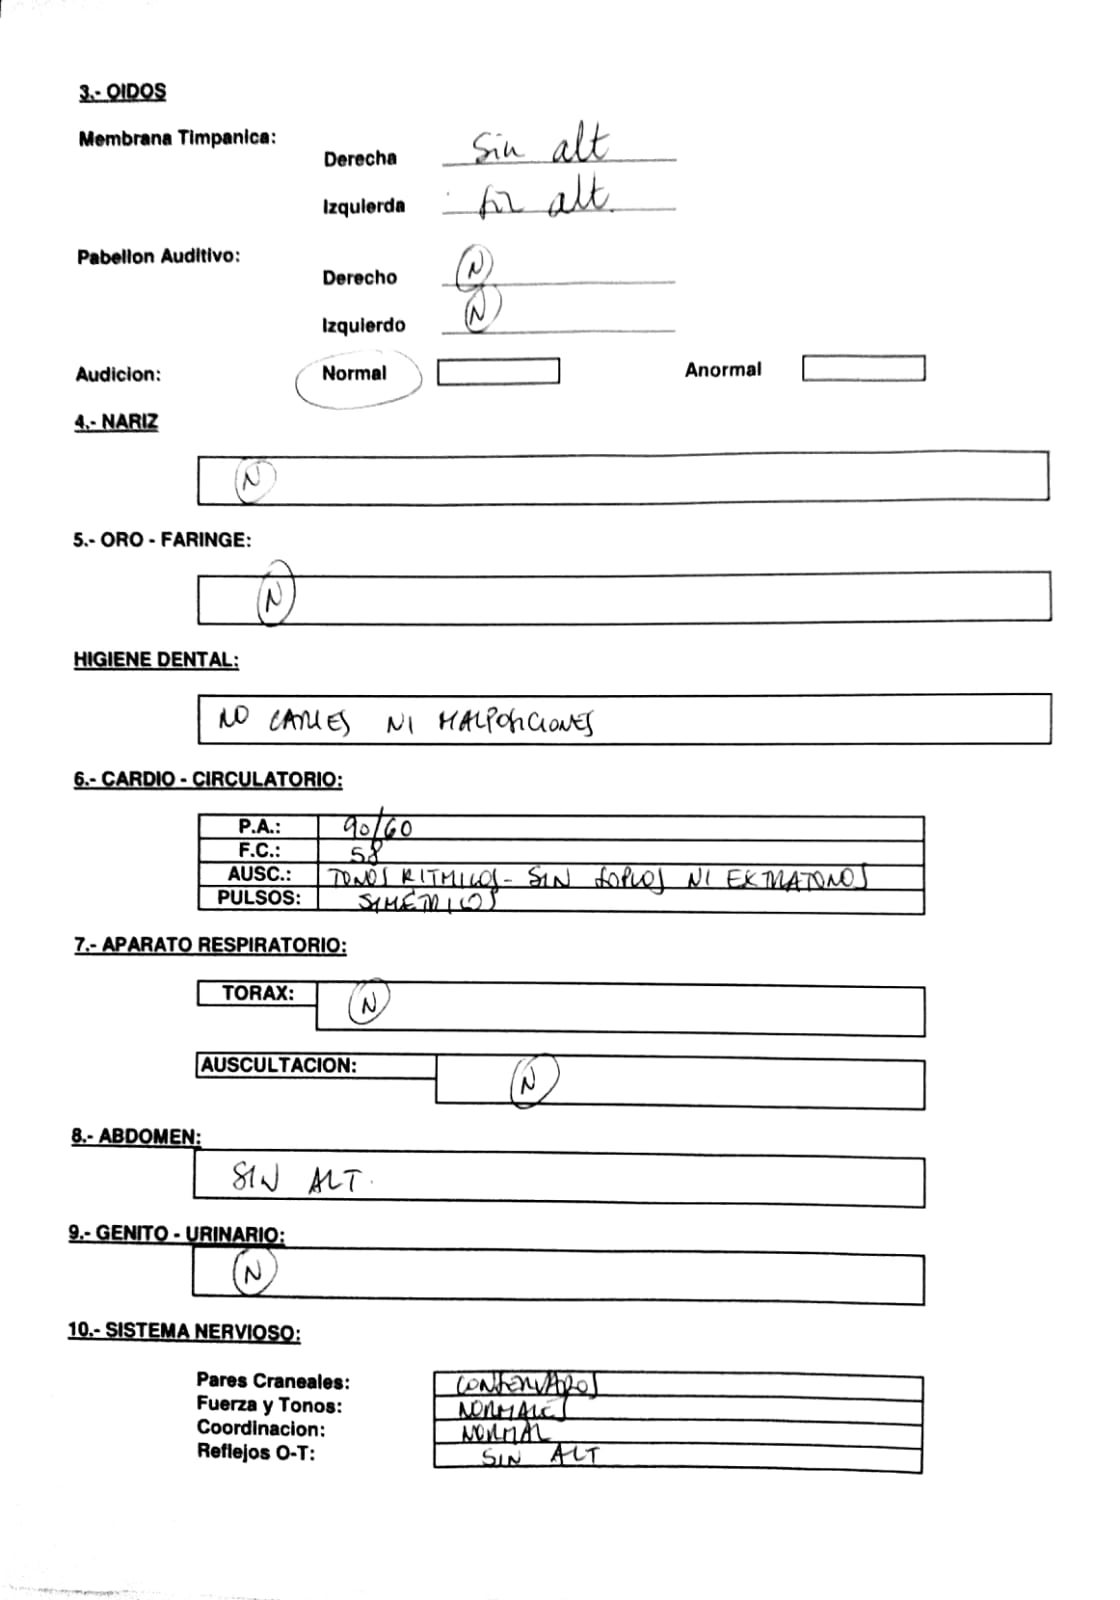 3.- OIDOS
Membrana Timpanica:
Derecha Sin alt
Izquierda sin alt.
Pabellon Auditivo:
Derecho N
Izquierdo N
Audicion: Normal Anormal
4.- NARIZ
N
5.- ORO - FARINGE:
N
HIGIENE DENTAL:
NO CARIES NI MALPOSICIONES
6.- CARDIO - CIRCULATORIO:
P.A.: 90/60
F.C.: 58
AUSC.: TONOS RITMICOS - SIN SOPLOS NI EXTRATONOS
PULSOS: SIMÉTRICOS
7.- APARATO RESPIRATORIO:
TORAX: N
AUSCULTACION: N
8.- ABDOMEN:
SIN ALT.
9.- GENITO - URINARIO:
N
10.- SISTEMA NERVIOSO:
Pares Craneales: CONSERVADOS
Fuerza y Tonos: NORMALES
Coordinacion: NORMAL
Reflejos O-T: SIN ALT